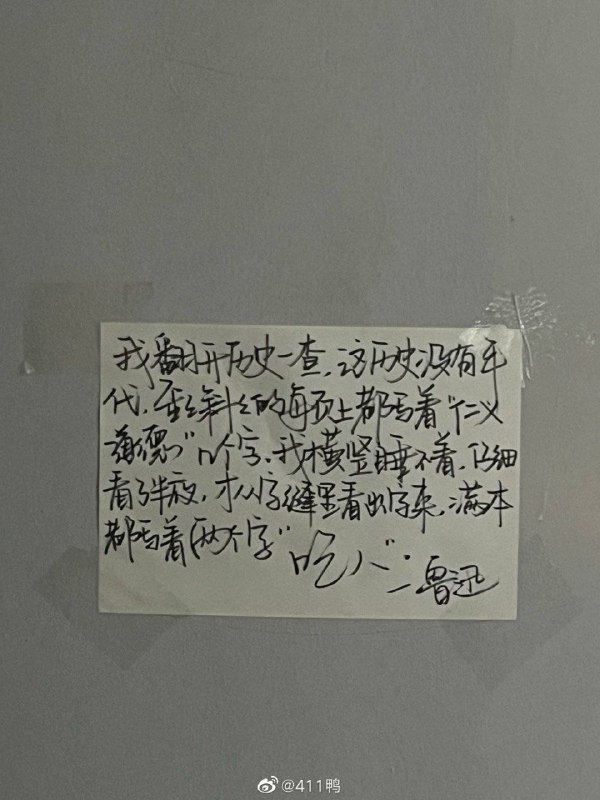 我翻开历史一查,这历史没有年
代,歪歪斜斜的每页上都写着“仁义
道德”几个字,我横竖睡不着,仔细
看了半夜,才从字缝里看出字来,满本
都写着两个字“吃人”.
—鲁迅
@411鸭